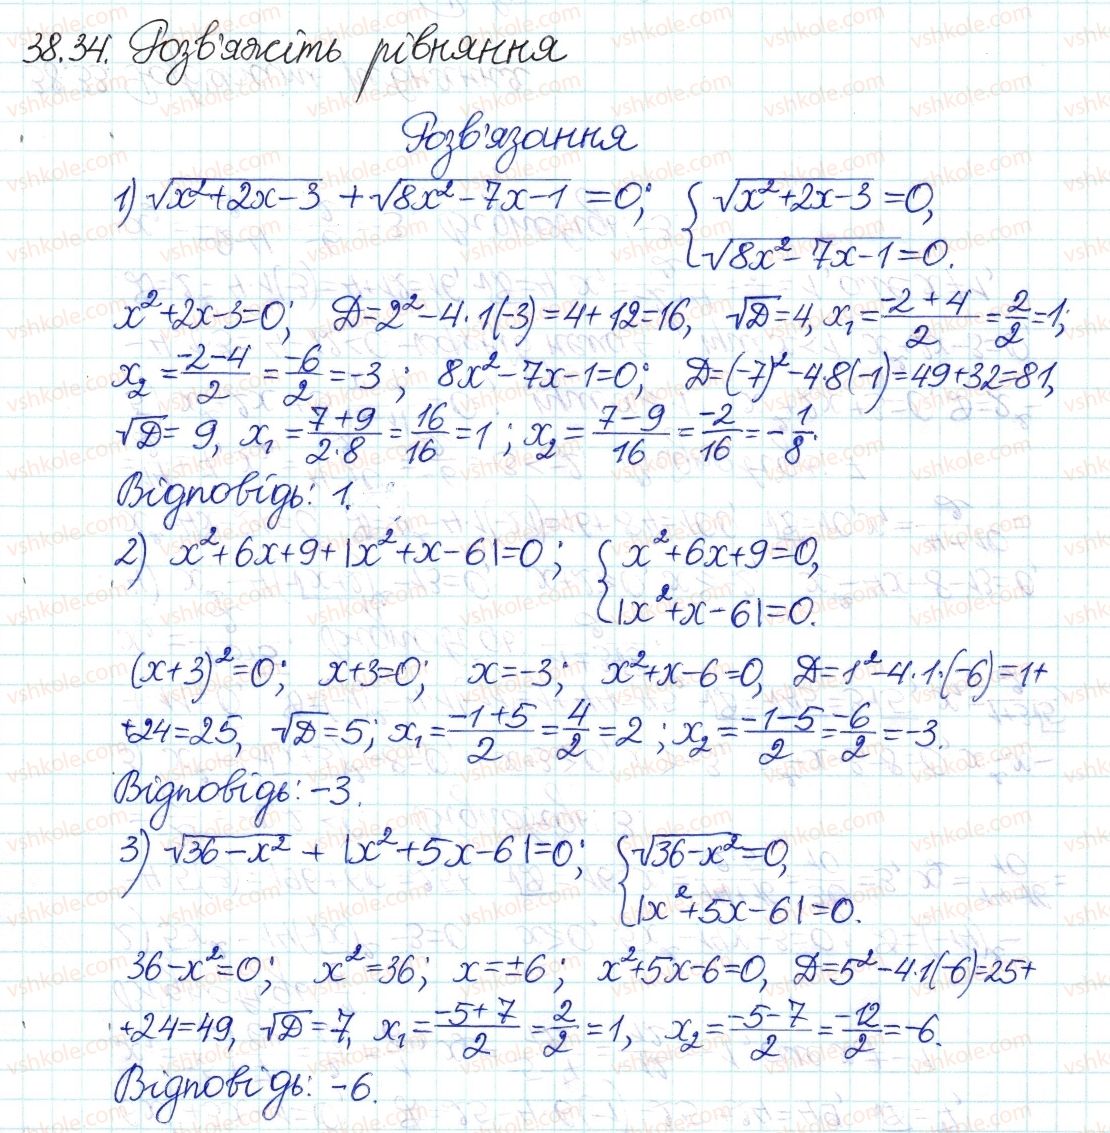 38.34. Розв'яжіть рівняння
Розв'язання
1) √(x²+2x-3) + √(8x²-7x-1) = 0; { √(x²+2x-3) = 0,
√(8x²-7x-1) = 0.
x²+2x-3=0; D=2²-4·1(-3)=4+12=16, √D=4, x₁=(-2+4)/2=2/2=1;
x₂=(-2-4)/2=-6/2=-3; 8x²-7x-1=0; D=(-7)²-4·8(-1)=49+32=81,
√D=9, x₁=(7+9)/(2·8)=16/16=1; x₂=(7-9)/16=-2/16=-1/8.
Відповідь: 1.
2) x²+6x+9+|x²+x-6|=0; { x²+6x+9=0,
|x²+x-6|=0.
(x+3)²=0; x+3=0; x=-3; x²+x-6=0, D=1²-4·1·(-6)=1+
+24=25, √D=5; x₁=(-1+5)/2=4/2=2; x₂=(-1-5)/2=-6/2=-3.
Відповідь: -3.
3) √(36-x²) + |x²+5x-6|=0; { √(36-x²)=0,
|x²+5x-6|=0.
36-x²=0; x²=36; x=±6; x²+5x-6=0, D=5²-4·1(-6)=25+
+24=49, √D=7, x₁=(-5+7)/2=2/2=1, x₂=(-5-7)/2=-12/2=-6.
Відповідь: -6.